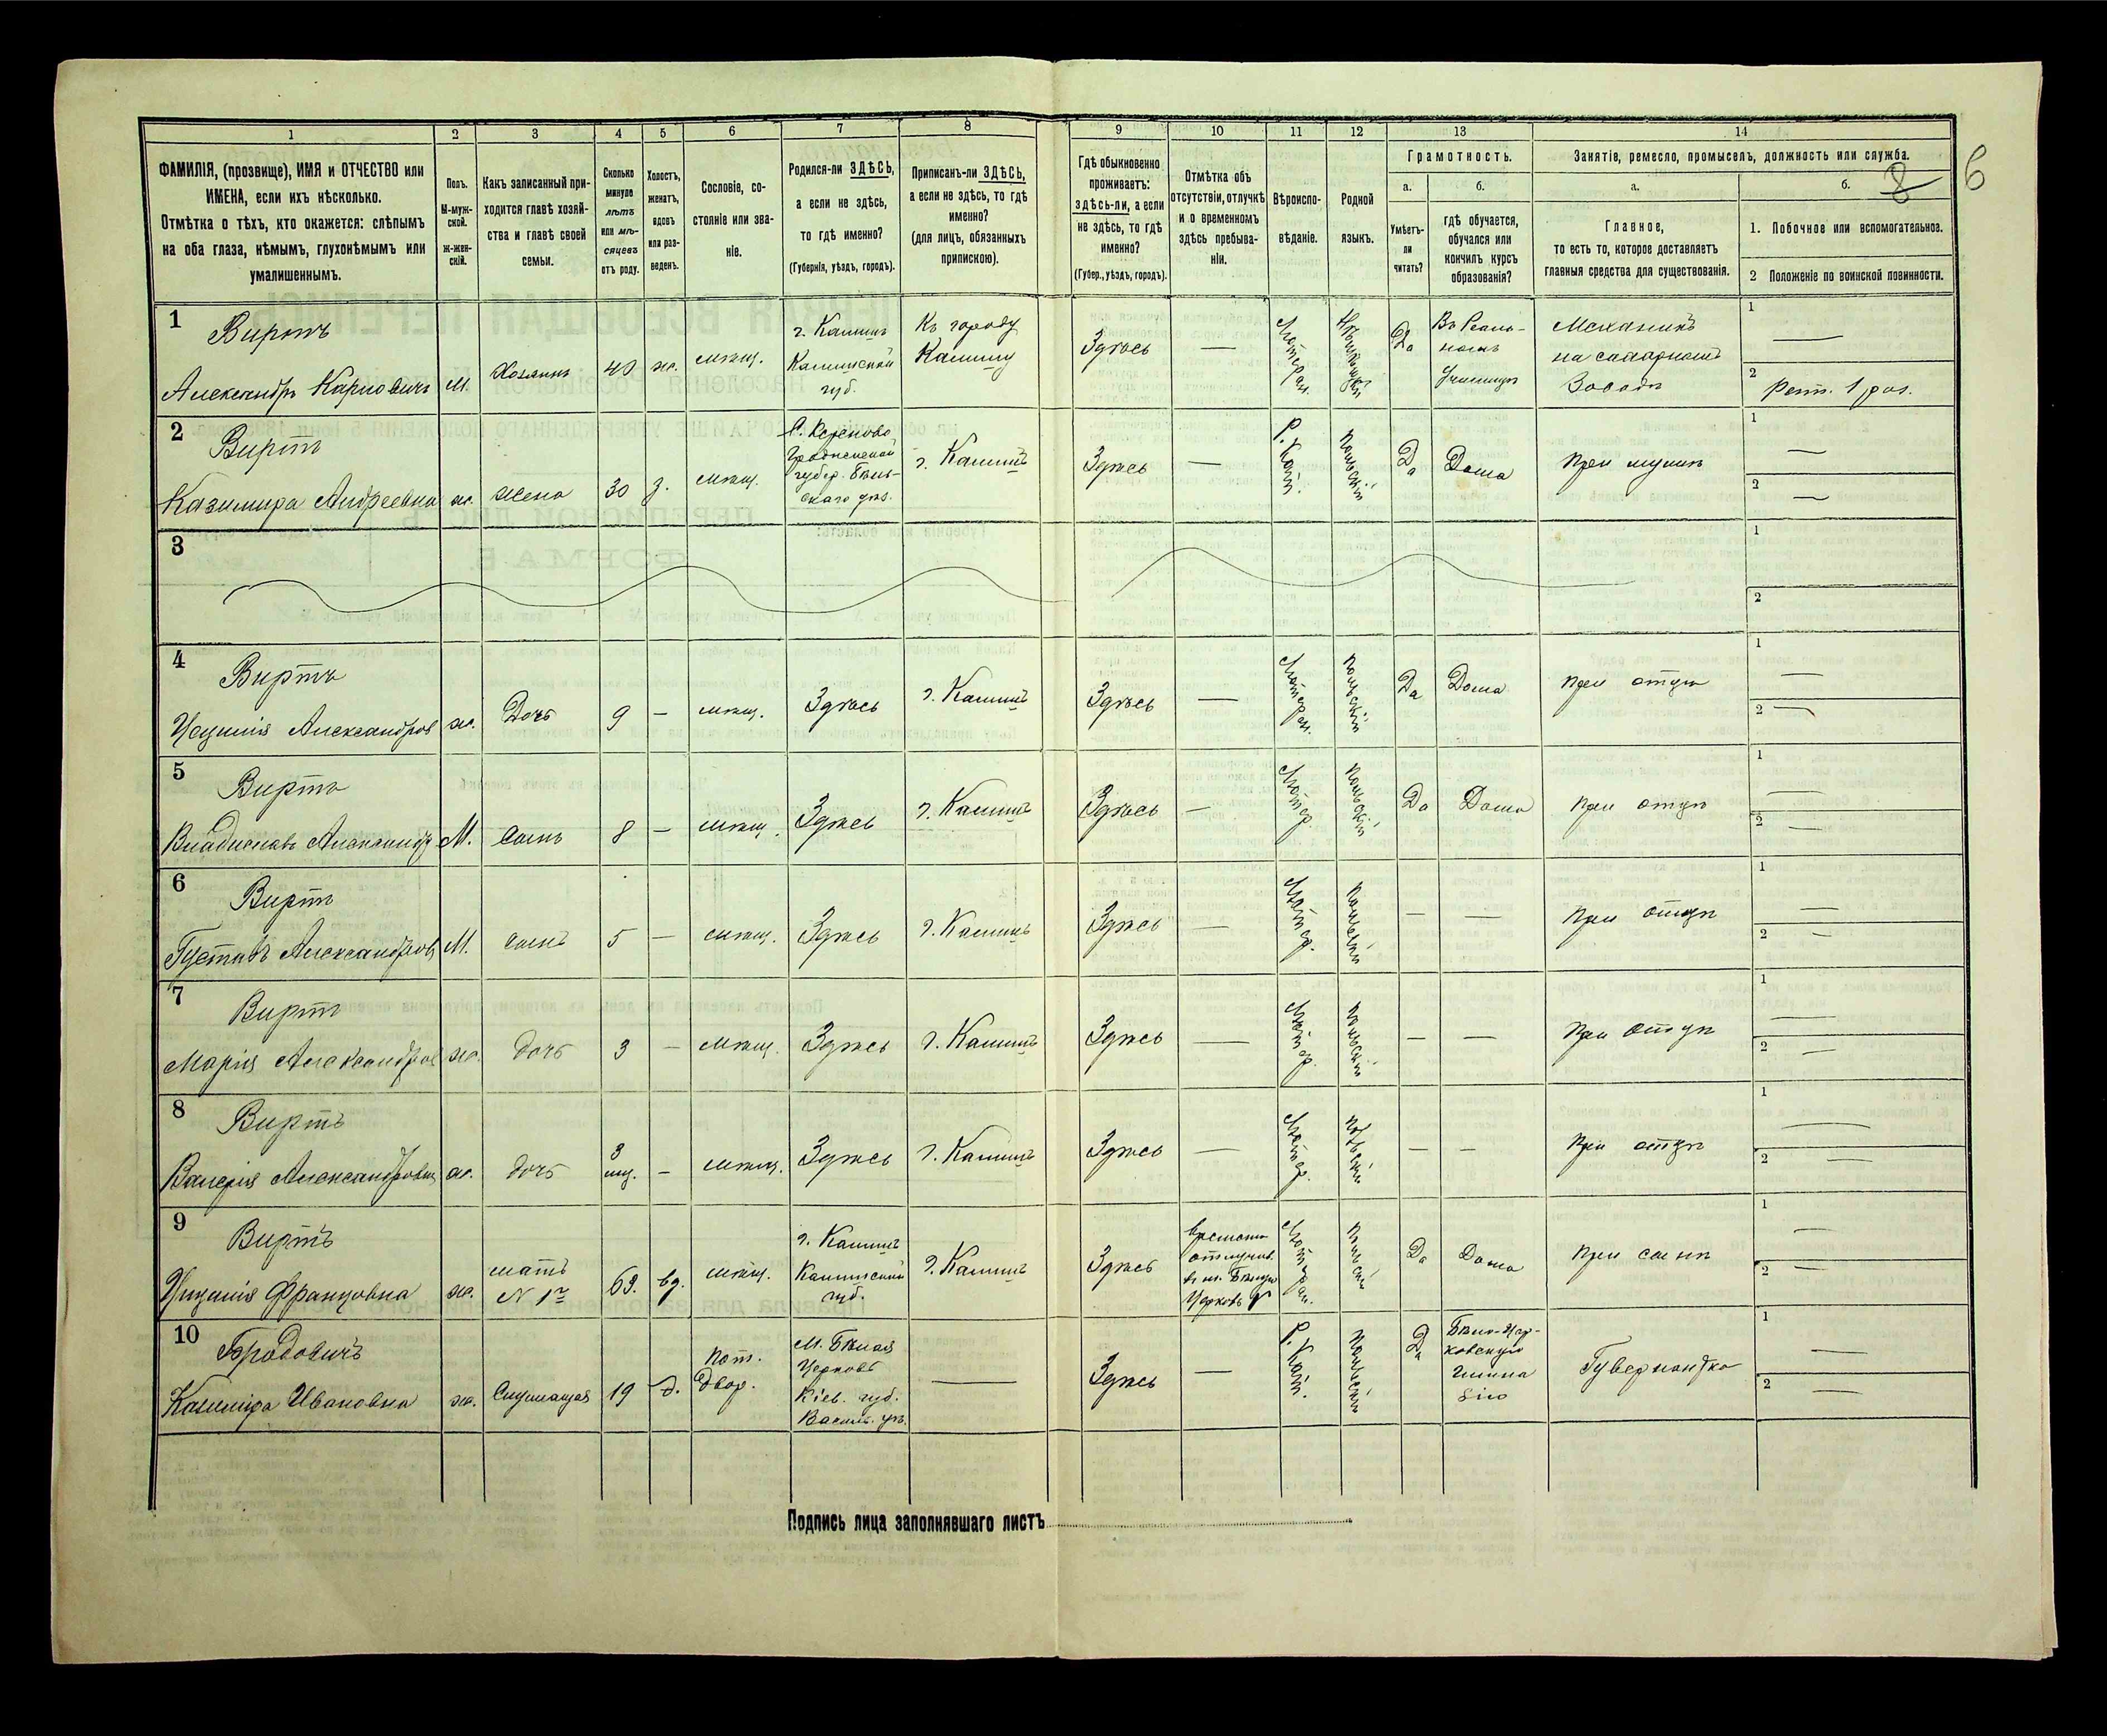 6
8
1 2 3 4 5 6 7 8 9 10 11 12 13 14
ФАМИЛІЯ, (прозвище), ИМЯ и ОТЧЕСТВО или
ИМЕНА, если ихъ нѣсколько.
Отмѣтка о тѣхъ, кто окажется: слѣпымъ
на оба глаза, нѣмымъ, глухонѣмымъ или
умалишеннымъ.
Полъ.
М-муж-
ской.
Ж-жен-
скій.
Какъ записанный при-
ходится главѣ хозяй-
ства и главѣ своей
семьи.
Сколько
минуло
лѣтъ
или мѣ-
сяцевъ
отъ роду.
Холостъ,
женатъ,
вдовъ
или раз-
веденъ.
Сословіе, со-
стояніе или зва-
ніе.
Родился-ли ЗДѢСЬ,
а если не здѣсь,
то гдѣ именно?
(Губернія, уѣздъ, городъ).
Приписанъ-ли ЗДѢСЬ,
а если не здѣсь, то гдѣ
именно?
(для лицъ, обязанныхъ
припискою).
Гдѣ обыкновенно
проживаетъ:
здѣсь-ли, а если
не здѣсь, то гдѣ
именно?
(Губер., уѣздъ, городъ).
Отмѣтка объ
отсутствіи, отлучкѣ
и о временномъ
здѣсь пребыва-
ніи.
Вѣроиспо-
вѣданіе.
Родной
языкъ.
Грамотность.
а.
Умѣетъ-
ли
читать?
б.
гдѣ обучается,
обучался или
кончилъ курсъ
образованія?
Занятіе, ремесло, промыселъ, должность или служба.
а.
Главное,
то есть то, которое доставляетъ
главныя средства для существованія.
б.
1. Побочное или вспомогательное.
2 Положеніе по воинской повинности.
1
Виртъ
Александръ Карловичъ
М.
Хозяинъ
40
ж.
мѣщ.
г. Калишъ
Калишской
губ.
Къ городу
Калишу
Здѣсь
—
Лютеран.
Да
Въ Реаль-
номъ
Училищѣ
Механикъ
на сахарномъ
Заводѣ
1
—
2
Ратн. 1 раз.
2
Виртъ
Казимира Андреевна
ж.
жена
30
з.
мѣщ.
Гродненской
губер. Бѣль-
скаго уѣз.
г. Калишъ
Здѣсь
—
Р. Кат.
Польскій
Да
Дома
При мужѣ
1
—
2
—
3
1
2
4
Виртъ
Цецилія Александров
ж.
Дочь
9
—
мѣщ.
Здѣсь
г. Калишъ
Здѣсь
—
Лютеран.
Польскій
Да
Дома
При отцѣ
1
—
2
—
5
Виртъ
Владиславъ Александр
М.
сынъ
8
—
мѣщ.
Здѣсь
г. Калишъ
Здѣсь
—
Лютер.
Польскій
Да
Дома
При отцѣ
1
—
2
—
6
Виртъ
Густавъ Александров
М.
сынъ
5
—
мѣщ.
Здѣсь
г. Калишъ
Здѣсь
—
Лютер.
Польскій
—
—
При отцѣ
1
—
2
—
7
Виртъ
Марія Александров
ж.
дочь
3
—
мѣщ.
Здѣсь
г. Калишъ
Здѣсь
—
Лютер.
Польскій
—
—
При отцѣ
1
—
2
—
8
Виртъ
Валерія Александровна
ж.
дочь
3
мѣ.
—
мѣщ.
Здѣсь
г. Калишъ
Здѣсь
—
Лютер.
Польскій
—
—
При отцѣ
1
—
2
—
9
Виртъ
Францовна
ж.
мать
N 1го
63.
вд.
мѣщ.
г. Калишъ
Калишской
губ.
г. Калишъ
Здѣсь
временно
отлучив.
въ м. Бѣлую
Церковь
Лютеран.
Польскій
Да
Дома
При сынѣ
1
—
2
—
10
Бродовичъ
Казимира Ивановна
ж.
Служащая
19
д.
пот.
двор.
М. Бѣлая
Церковь
Кіев. губ.
Василь. уѣз.
—
Здѣсь
—
Р. Кат.
Польскій
Да
Бѣло-Цер-
ковскую
гимна
зію
Гувернантка
1
—
2
—
Подпись лица заполнявшаго листъ